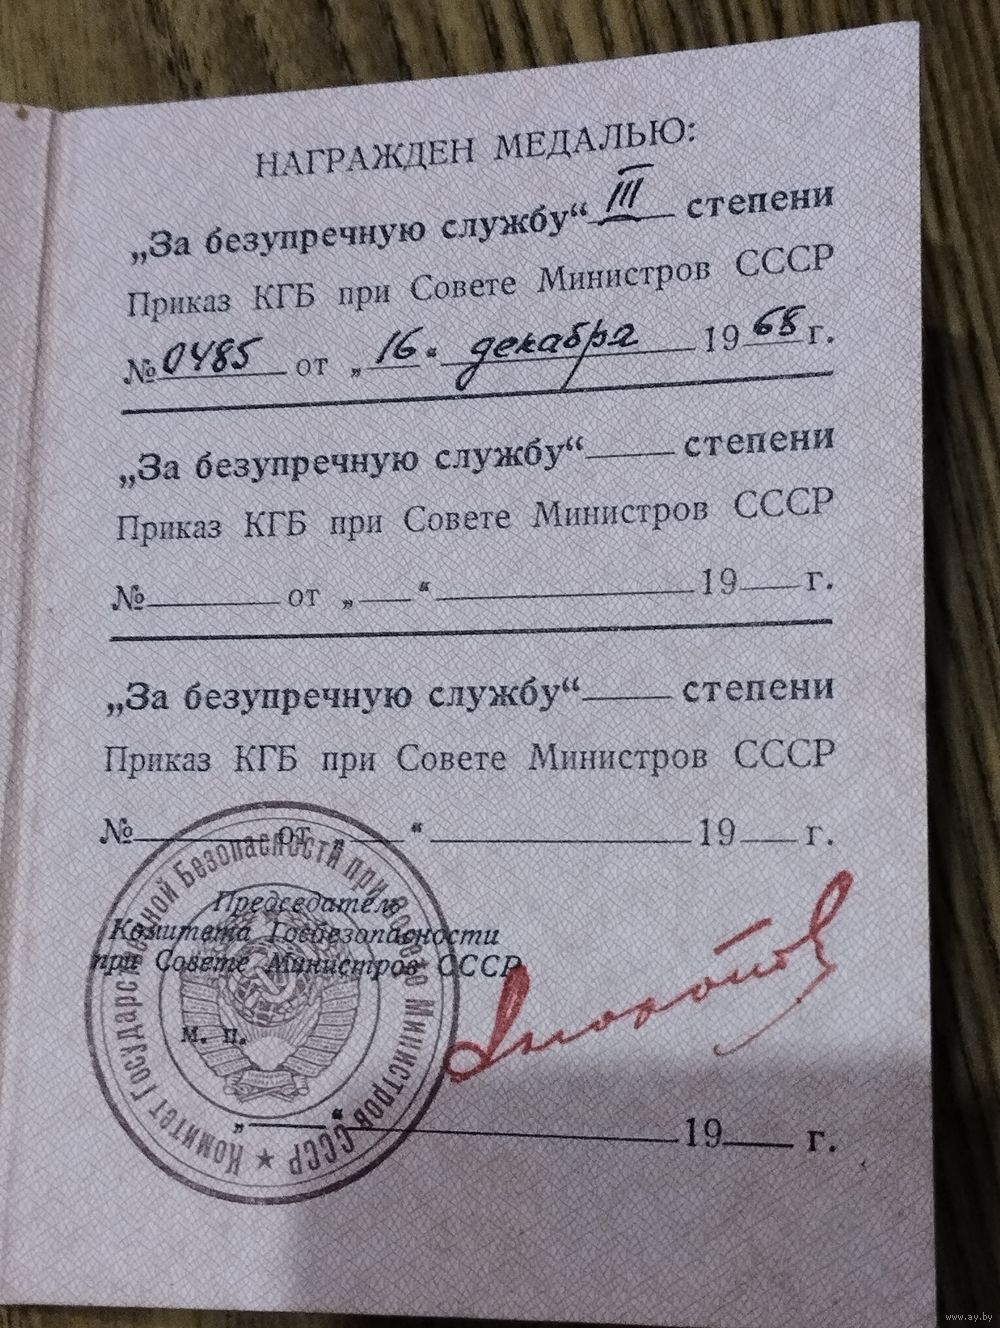 НАГРАЖДЕН МЕДАЛЬЮ:
„За безупречную службу“ III степени
Приказ КГБ при Совете Министров СССР
№ 0485 от „16“ декабря 1968 г.
„За безупречную службу“ степени
Приказ КГБ при Совете Министров СССР
№ от „ “ 19 г.
„За безупречную службу“ степени
Приказ КГБ при Совете Министров СССР
№ от „ “ 19 г.
Председатель
Комитета Госбезопасности
при Совете Министров СССР
м. п.
„ “ 19 г.
Комитет Государственной Безопасности при Совете Министров СССР ★
www.ay.by